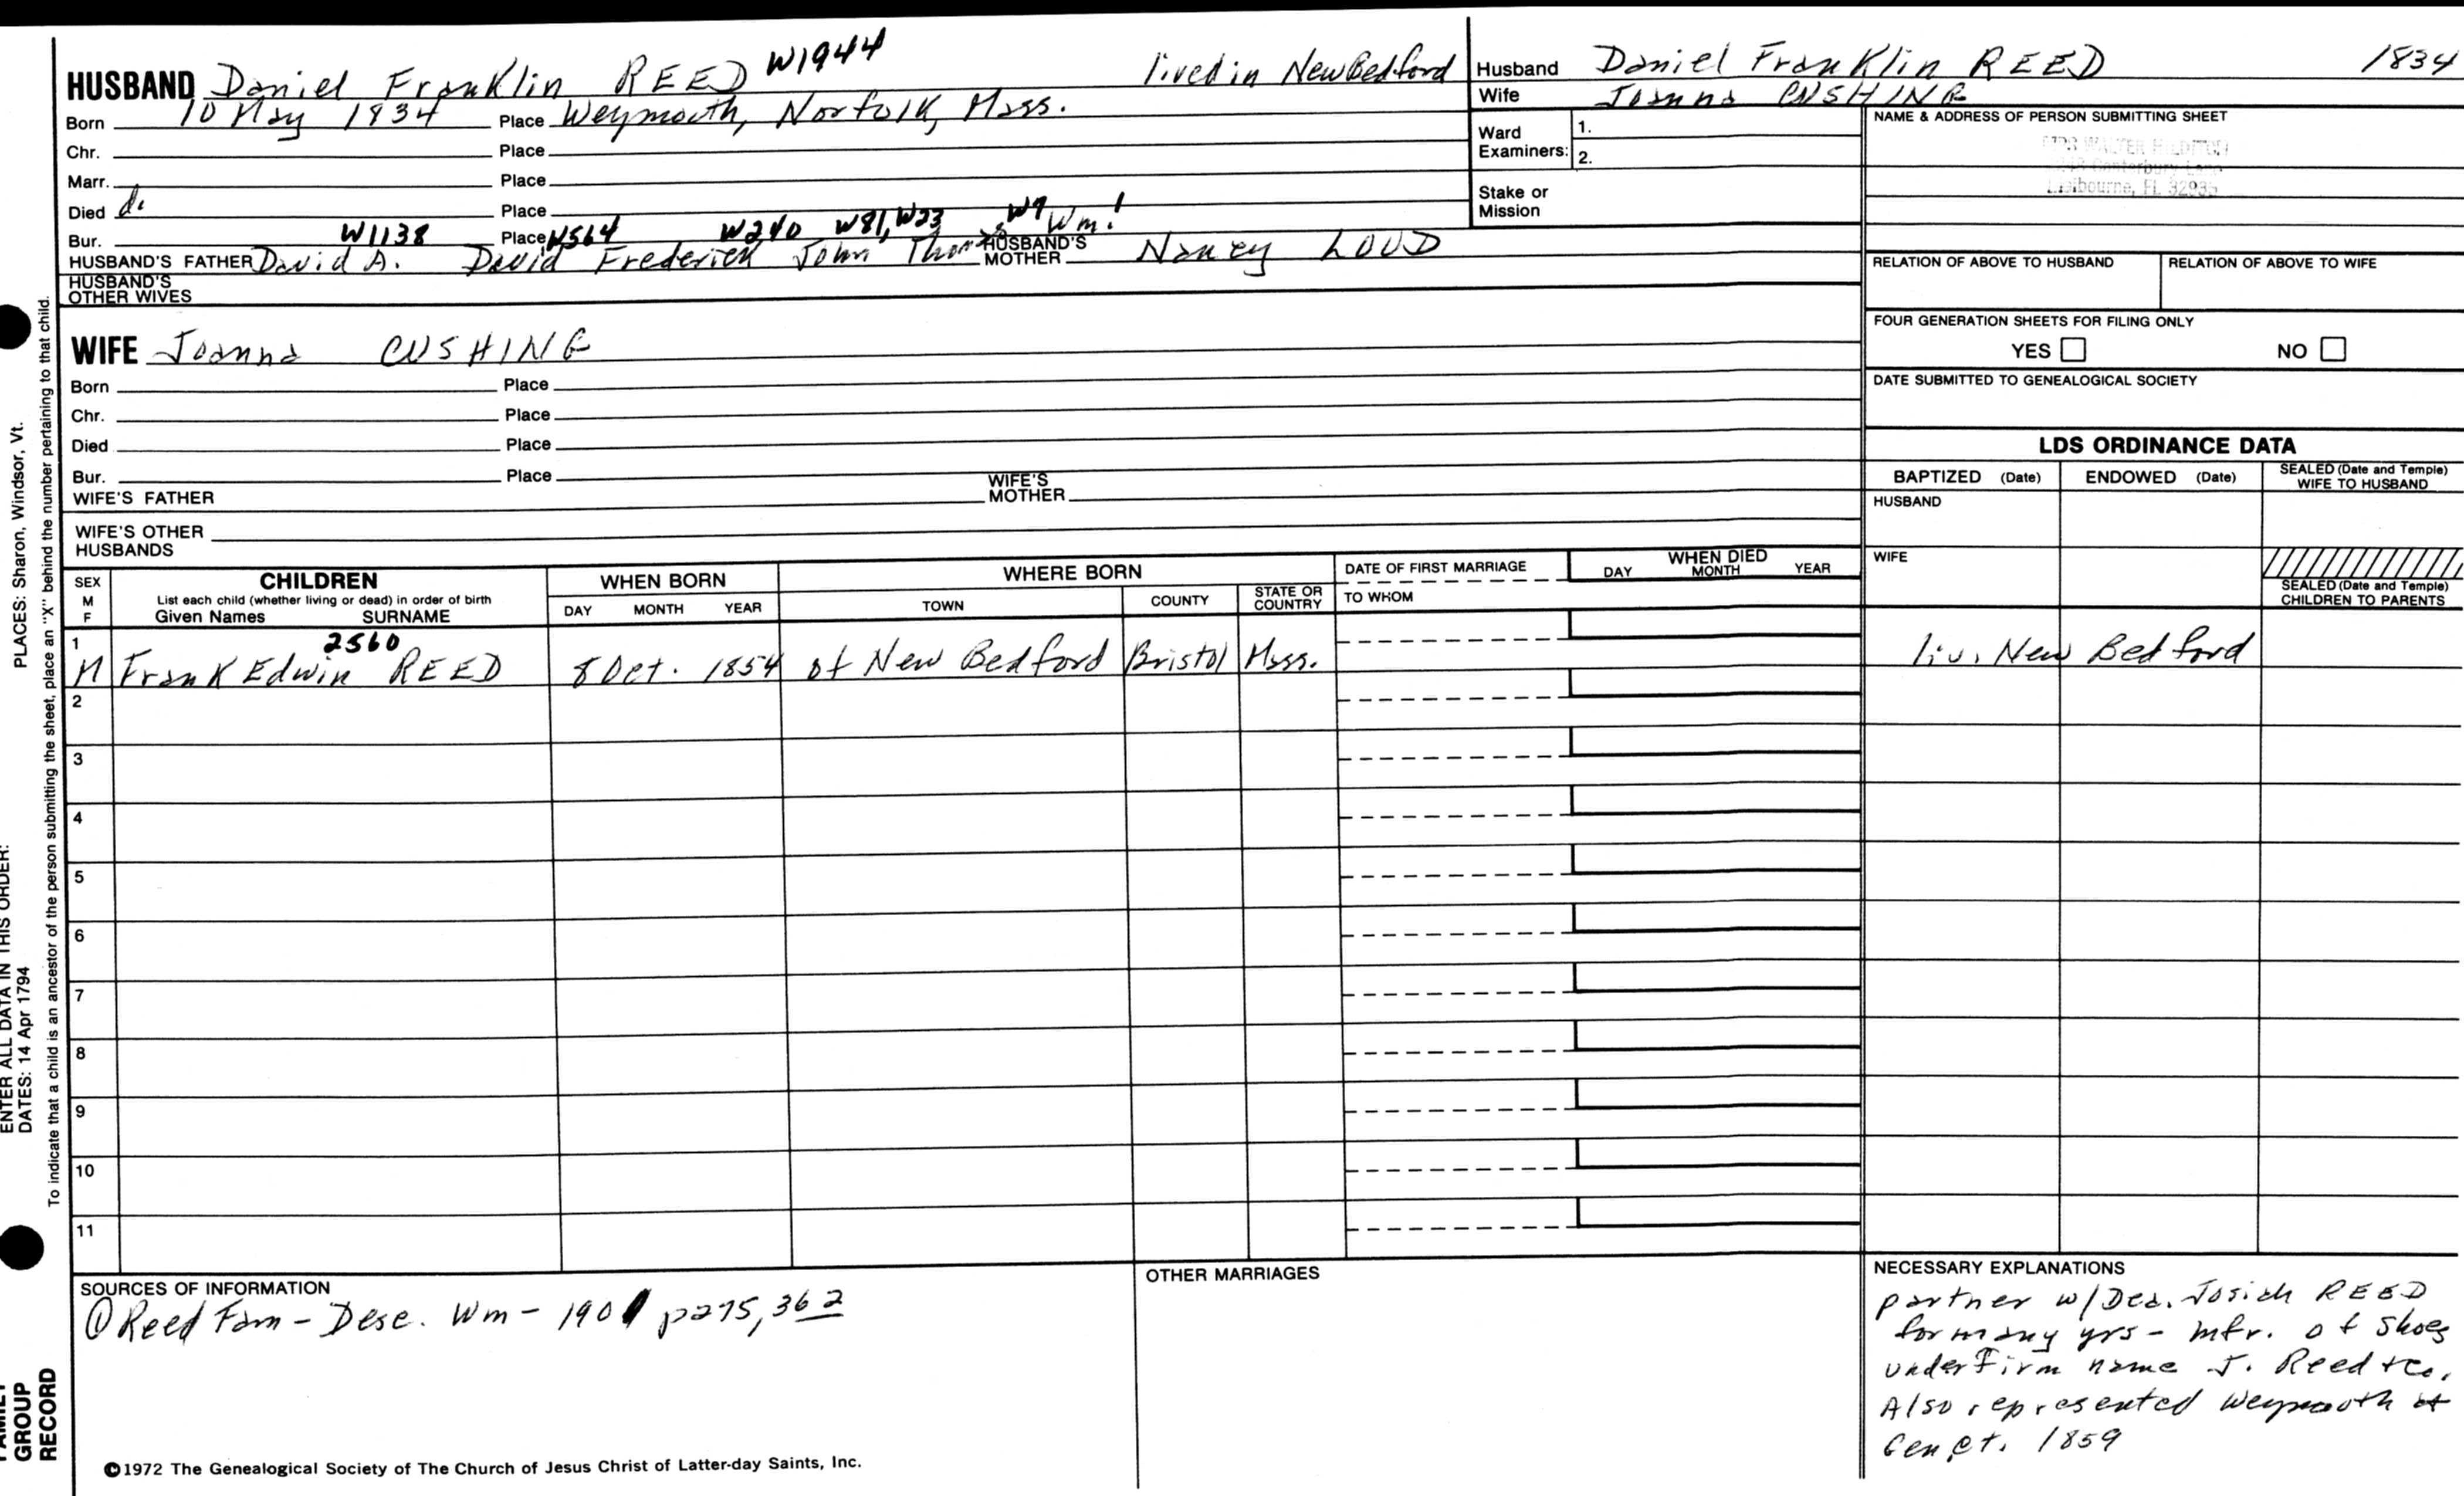 HUSBAND Daniel Franklin REED W1944 lived in New Bedford
Born 10 May 1834 Place Weymouth, Norfolk, Mass.
Chr. Place
Marr. Place
Died d. Place
Bur. W1138 Place W564 W240 W81, W23 W9 1
HUSBAND'S FATHER David A. David Frederick John Thomas Wm. HUSBAND'S MOTHER Nancy LOUD
HUSBAND'S OTHER WIVES
Husband Daniel Franklin REED 1834
Wife Joanna CUSHING
Ward Examiners: 1.
2.
Stake or Mission
NAME & ADDRESS OF PERSON SUBMITTING SHEET
MRS WALTER
Canterbury Lane
Melbourne, FL 32935
RELATION OF ABOVE TO HUSBAND RELATION OF ABOVE TO WIFE
FOUR GENERATION SHEETS FOR FILING ONLY
YES NO
DATE SUBMITTED TO GENEALOGICAL SOCIETY
WIFE Joanna CUSHING
Born Place
Chr. Place
Died Place
Bur. Place
WIFE'S FATHER WIFE'S MOTHER
WIFE'S OTHER HUSBANDS
LDS ORDINANCE DATA
BAPTIZED (Date) ENDOWED (Date) SEALED (Date and Temple) WIFE TO HUSBAND
HUSBAND
WIFE
SEALED (Date and Temple) CHILDREN TO PARENTS
SEX M F
CHILDREN
List each child (whether living or dead) in order of birth
Given Names SURNAME
WHEN BORN
DAY MONTH YEAR
WHERE BORN
TOWN COUNTY STATE OR COUNTRY
DATE OF FIRST MARRIAGE
TO WHOM
WHEN DIED
DAY MONTH YEAR
1 2560
M Frank Edwin REED 8 Oct. 1854 of New Bedford Bristol Mass. liv. New Bedford
2
3
4
5
6
7
8
9
10
11
SOURCES OF INFORMATION
① Reed Fam - Desc. Wm - 1901 p275, 362
OTHER MARRIAGES
NECESSARY EXPLANATIONS
partner w/Dea. Josiah REED
for many yrs - mfr. of shoes
under Firm name J. Reed & Co.
Also represented Weymouth at
Gen Ct. 1859
©1972 The Genealogical Society of The Church of Jesus Christ of Latter-day Saints, Inc.
PLACES: Sharon, Windsor, Vt.
To indicate that a child is an ancestor of the person submitting the sheet, place an "X" behind the number pertaining to that child.
ENTER ALL DATA IN THIS ORDER:
DATES: 14 Apr 1794
FAMILY
GROUP
RECORD